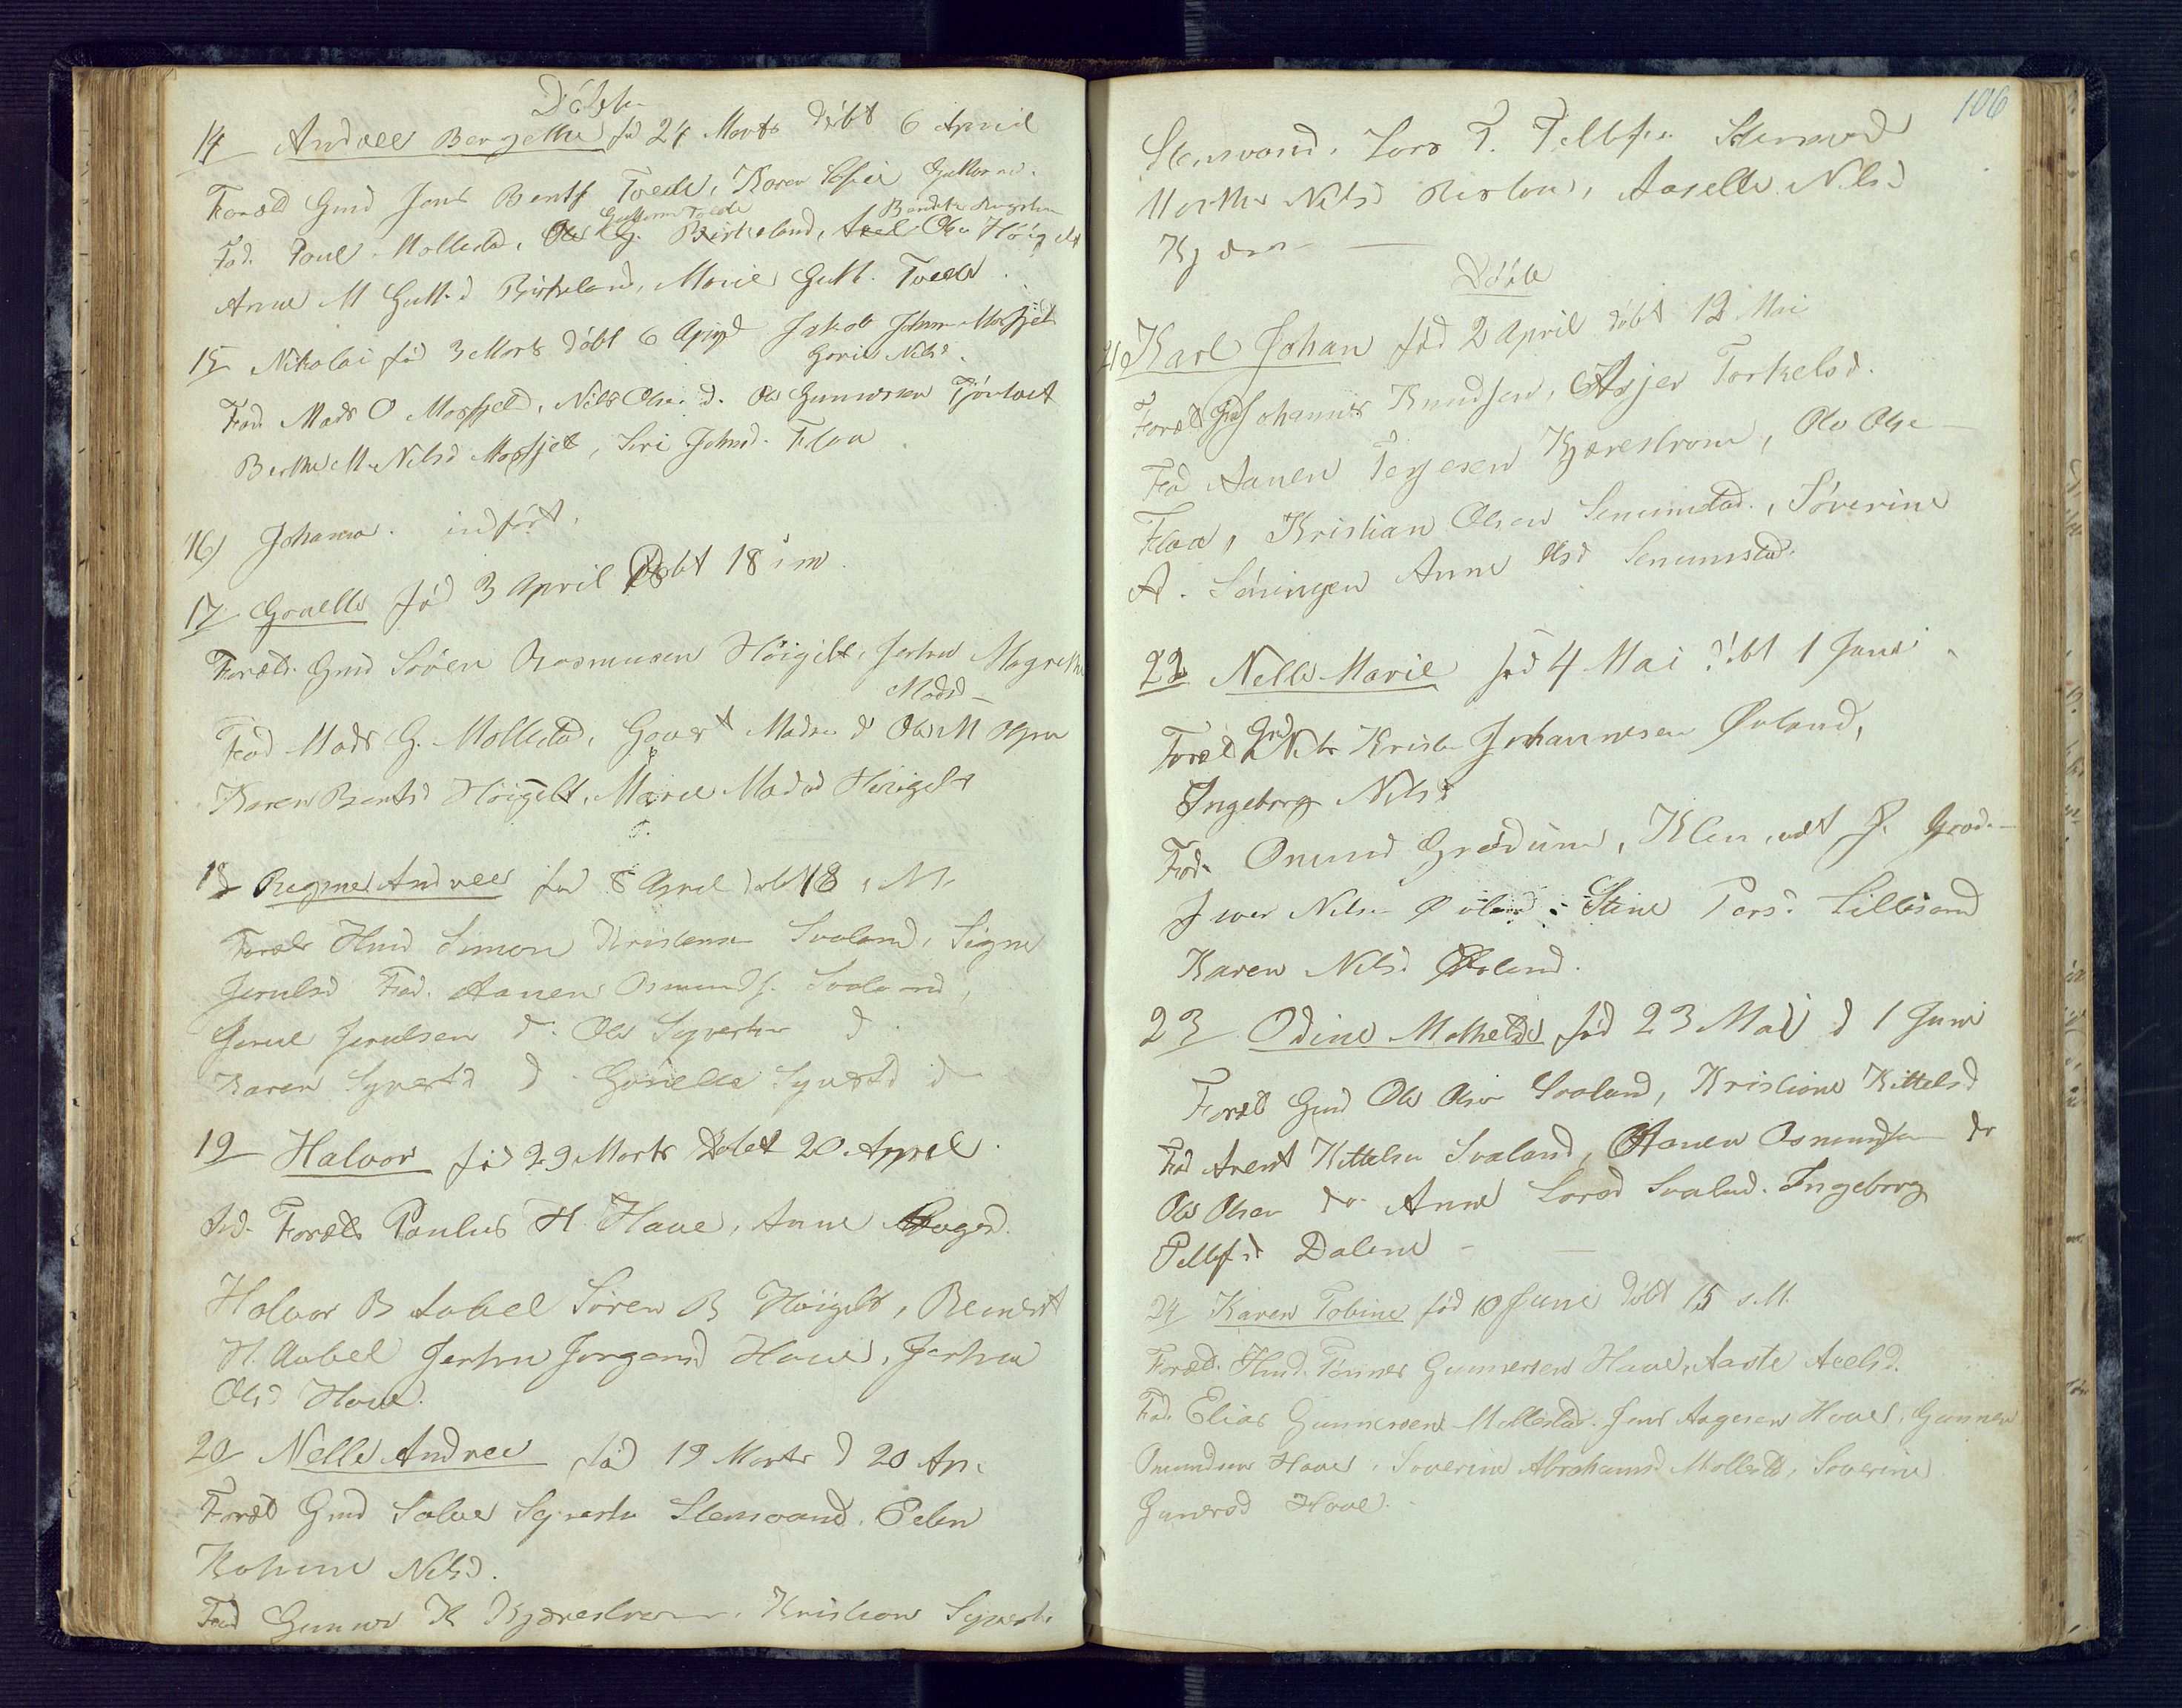 Døbte
14 Andrea Bergethe fød 24 Marts døbt 6 April
Foræld Gmd Jens Bentf Tvede, Karen Sofie Guttormd.
Guttorm Tvede Bendik
Fad. Poul Mollestad, Ole G. Birkeland, Axel Olsen Höigilt
Anne M Guttd Birkeland, Marie Gutt. Tvede
15 Nikolai fød 3 Marts döbt 6 April Jakob Johns Mosfjeld
Gorine Nilsd.
Fad Mads O Mosfjeld, Nils Olsen d. Ole Gunnersen Tjönlait
Berthe M. Nilsd Mosfjeld, Siri Johnsd. Flaa
16) Johanna. indført.
17 Gonelle fød 3 April Döbt 18 s m.
Foræld. Gmd Sören Rasmusen Höigilt, Jertru Magrethe
Madsd
Fad Mads G. Mollestad, Govert Madsen d Ole M Olsen
Karen Bentsd Höigilt, Marie Madsd Höigilt
18 Ragne Andrea fød 8 April døbt 18 s. M.
Foræld Hmd Simon Kristensen Svaland, Signe
Jerulsd Fad. Aanen Osmundf. Svaland,
Jerul Jerulsen d. Ole Syvertsen d
Karen Syvertsd d. Gonelle Syvertsd d
19 Halvor fød 29 Marts Døbt 20. April.
Ind. Foræld Paulus H. Haue, Anne Aagesd.
Halvor B Aabel Sören B Höigilt, Berntt
H. Aabel Jertru Jörgensd Haue, Jertru
Olsd Haue.
20 Nelle Andrea fød 19 Marts d 20 Ap.
Foræld Gmd Salve Syvertsen Stensvand, Peln
Kathrine Nilsd.
Fad Gunner K Kjærestrøm. Kristian Syverts.
106
Stensvand, Lars T. Tellefsen Stensvand
Marthe Nilsd Risland, Aaselle Nilsd
Kjær
Döbte
21 Karl Johan fød 2 April døbt 12 Mai
Foræld Gmd Johannes Knudsen, Asjer Torkelsd.
Fad Aanen Terjesen Kjærestrøm, Ole Olse
Flaa, Kristian Olsen Senumstad, Söverine
A. Søningen Anne Olsd Senumstad.
22 Nelle Marie fød 4 Mai døbt 1 Juni
Foræld Gmd Nils Kristen Johannesen Øvland,
Ingeborg Nilsd
Fad. Omund Grødum, J. Grød.
Iver Nilsen Øvland, Stine Pers. Lillesand
Karen Nilsd Øvland.
23 Odine Mathelde fød 23 Mai d 1 Juni
Foræld Gmd Ole Olsen Svaland, Kristiane Kittelsd
Fad Arent Kittelsen Svaland, Aanen Osmundsen do
Ole Olsen do. Anne Larsd Svaland. Ingeborg
Tellefsd Dalene
24 Karen Tobine fød 10 Juni døbt 15 s.M.
Foræld. Hmd. Tönnes Gunnersen Haue, Aaste Axelsd.
Fad. Elias Gunnersen Mollestad. Jens Aagesen Haue, Gunner
Omundsen Haue, Soverine Abrahamsd Mollestad, Soverine
Gunersd Haue.